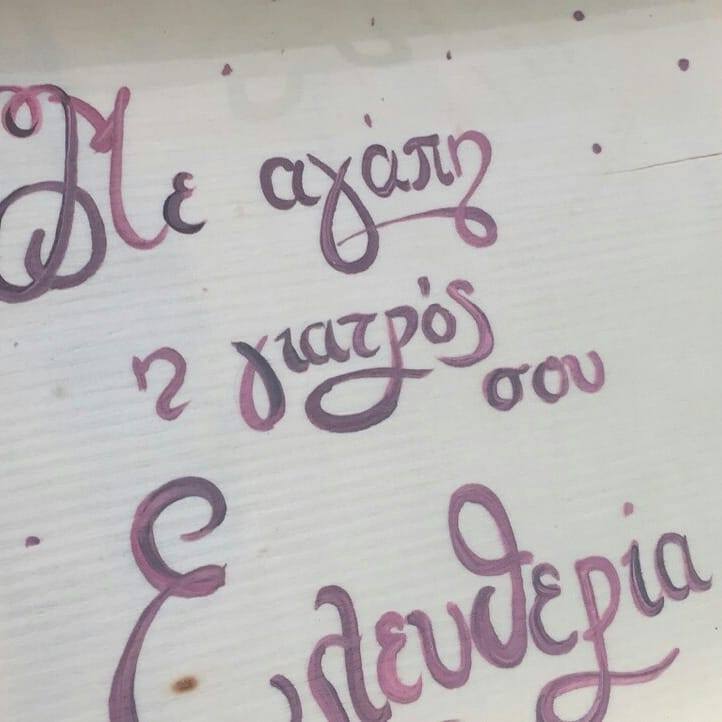 Με αγάπη
η γιατρός σου
Ελευθερία